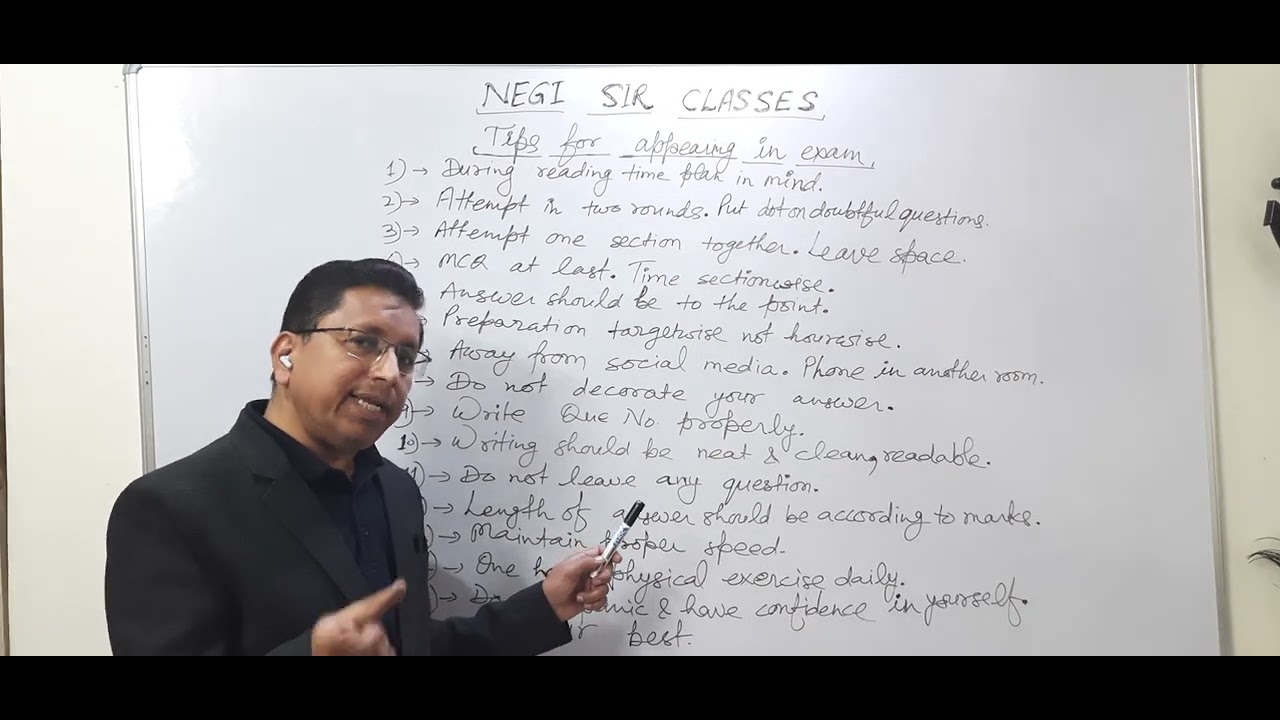 NEGI SIR CLASSES
Tips for appearing in exam.
1)→ During reading time plan in mind.
2)→ Attempt in two rounds. Put dot on doubtful questions.
3)→ Attempt one section together. Leave space.
)→ MCQ at last. Time sectionwise.
Answer should be to the point.
Preparation targetwise not hourwise.
Away from social media. Phone in another room.
→ Do not decorate your answer.
)→ Write Que No. properly.
10)→ Writing should be neat & clean, readable.
11)→ Do not leave any question.
)→ Length of answer should be according to marks.
)→ Maintain proper speed.
→ One physical exercise daily.
)→ & have confidence in yourself.
best.